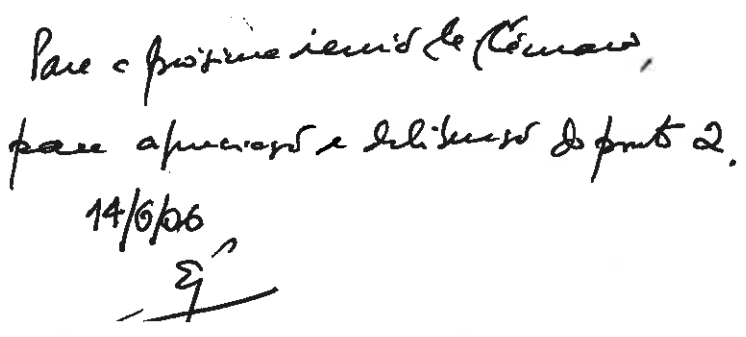 Para a próxima reunião de Câmara,
para apreciação e deliberação do ponto 2.
14/6/06